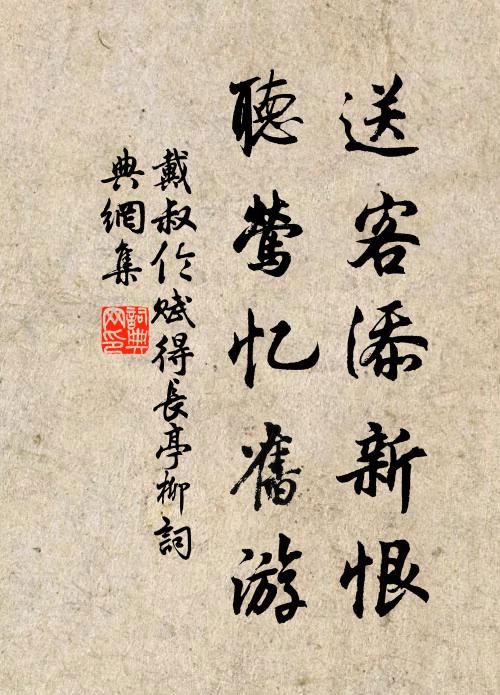 送客添新恨
聽莺忆舊游
戴叔伦赋得長亭柳詞
典網集
詞典
网印